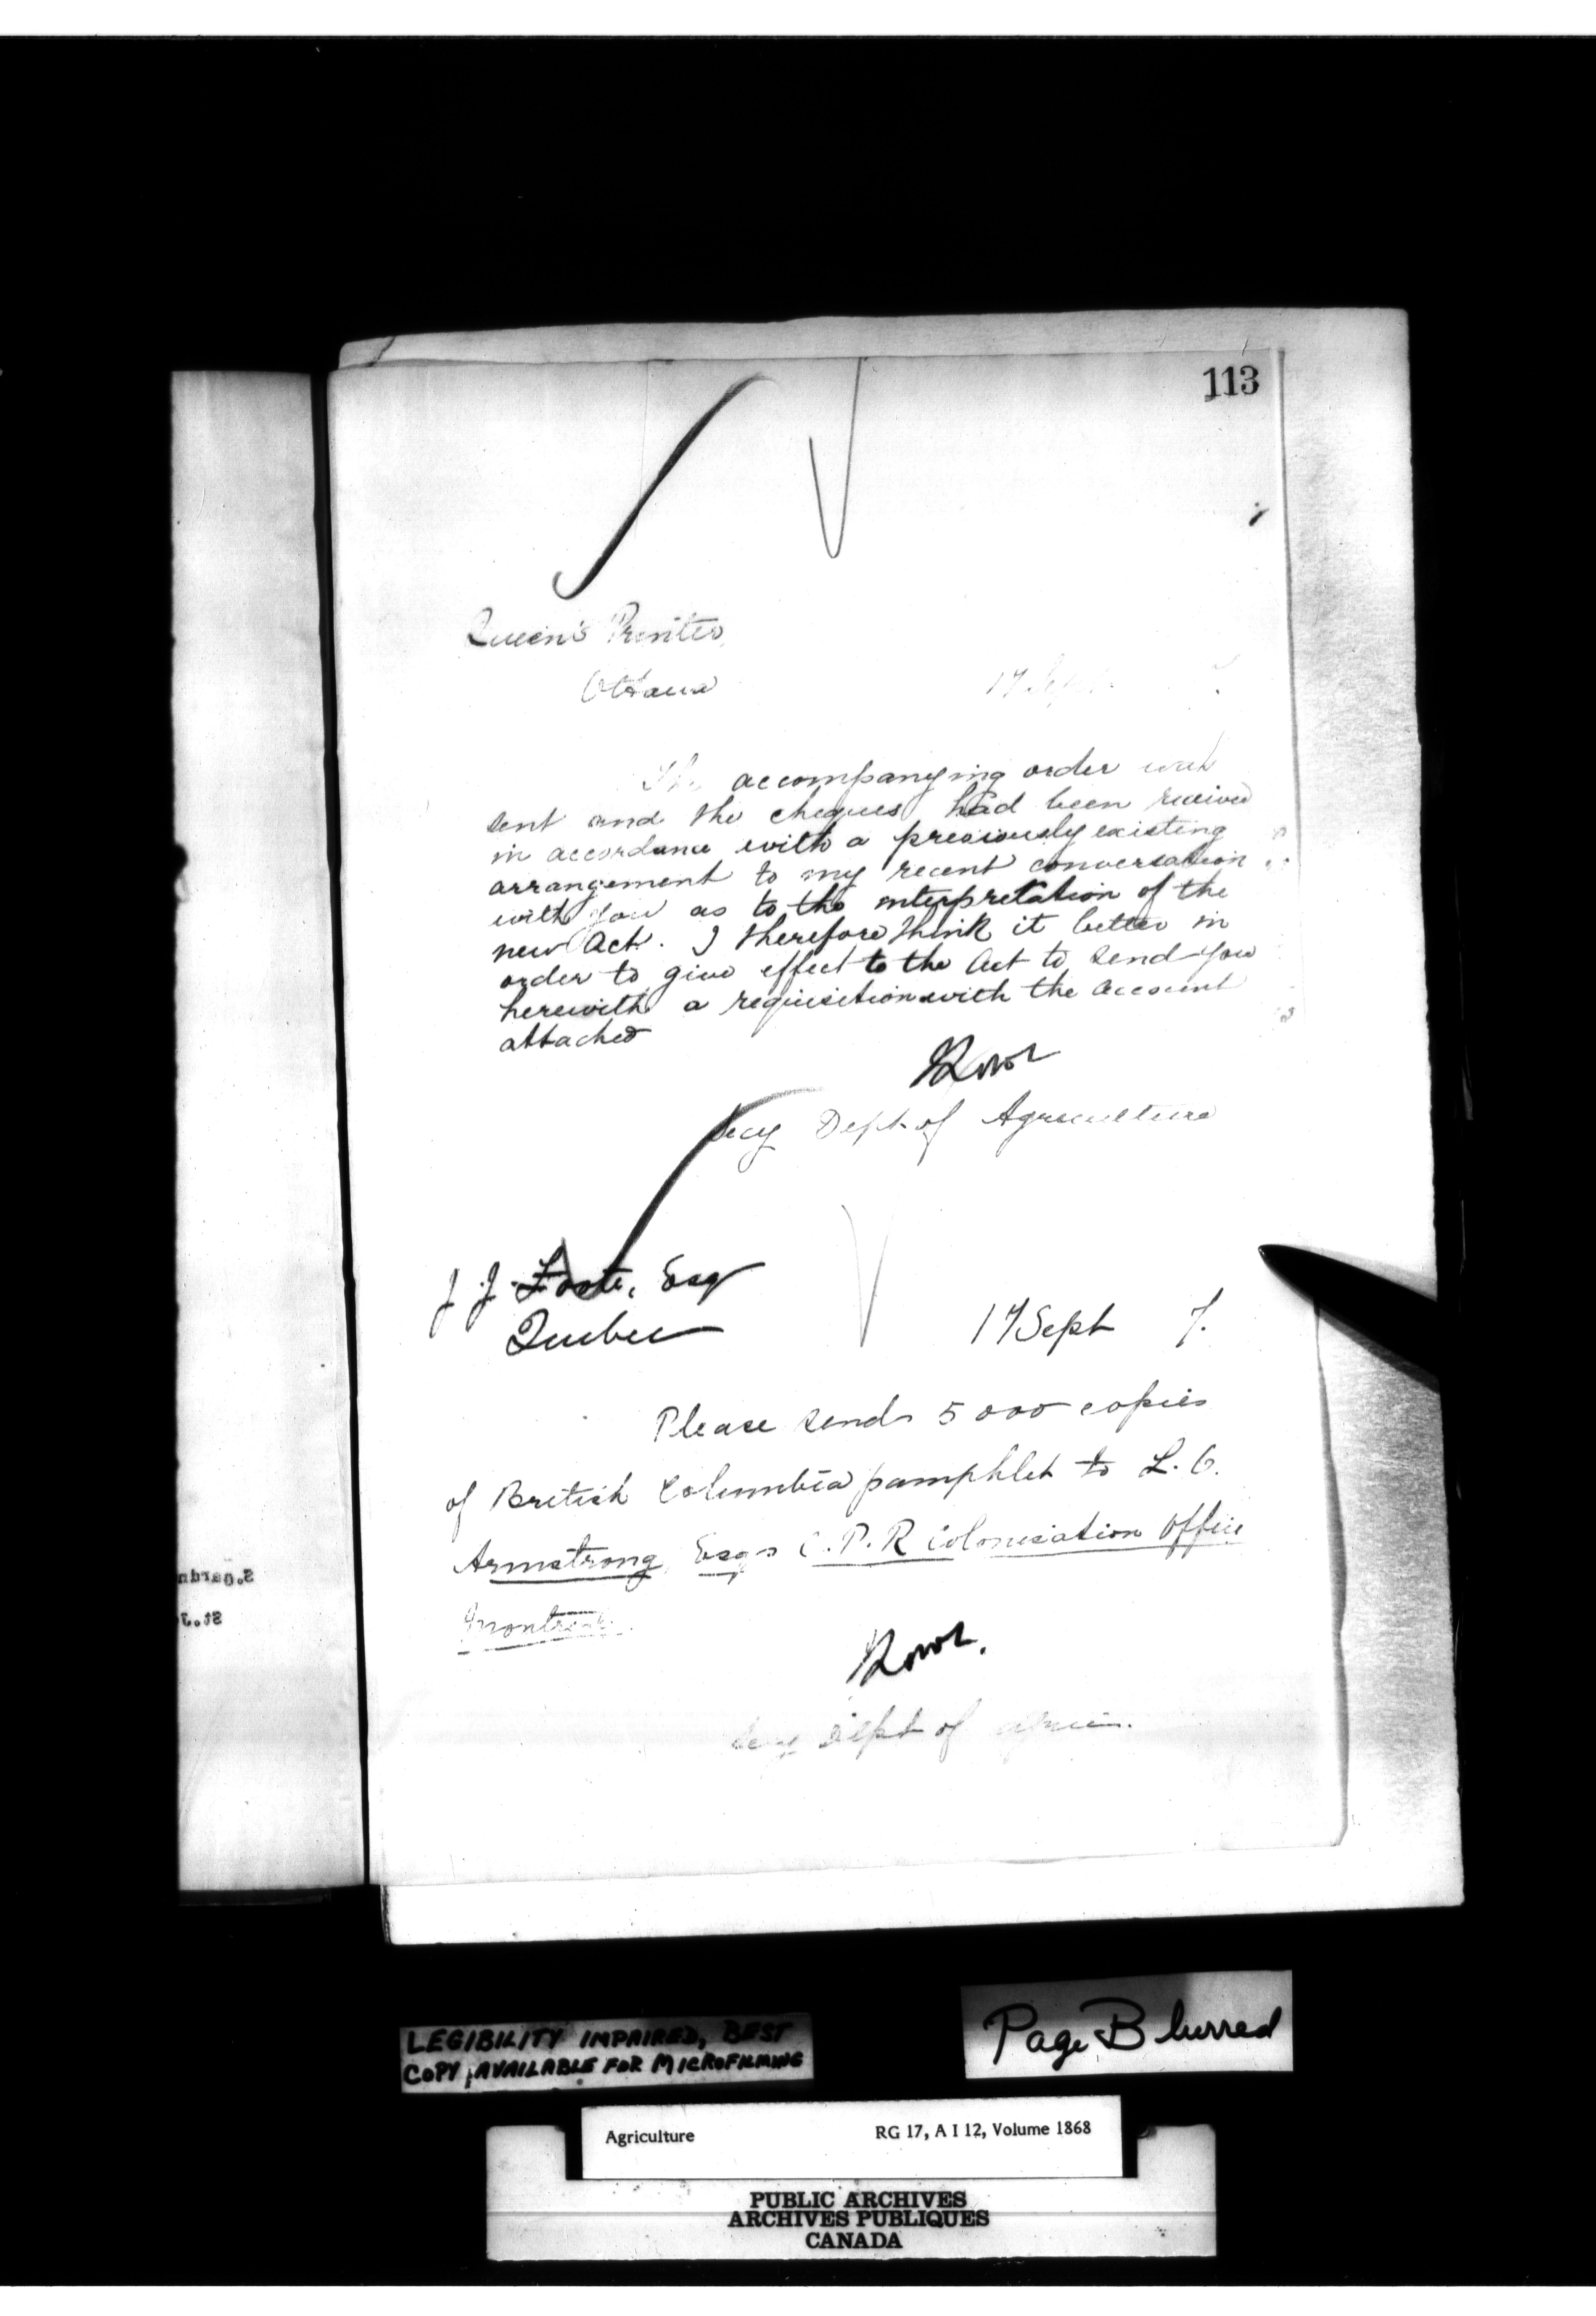 113
Queen's Printer,
Ottawa
17 Sept
The accompanying order was
sent and the cheques had been received
in accordance with a previously existing
arrangement to my recent conversation
with you as to the interpretation of the
new Act. I therefore think it better in
order to give effect to the Act to send you
herewith a requisition with the account
attached
Secy Dept of Agriculture
J. J. Foote, Esq
Quebec
17 Sept 7.
Please send 5000 copies
of British Columbia pamphlet to L. O.
Armstrong, Esq, C.P.R Colonisation Office
Montreal.
Secy Dept of Agric.
S.Gardn
St.J
LEGIBILITY IMPAIRED, BEST
COPY AVAILABLE FOR MICROFILMING
Page Blurred
Agriculture RG 17, A I 12, Volume 1868
PUBLIC ARCHIVES
ARCHIVES PUBLIQUES
CANADA